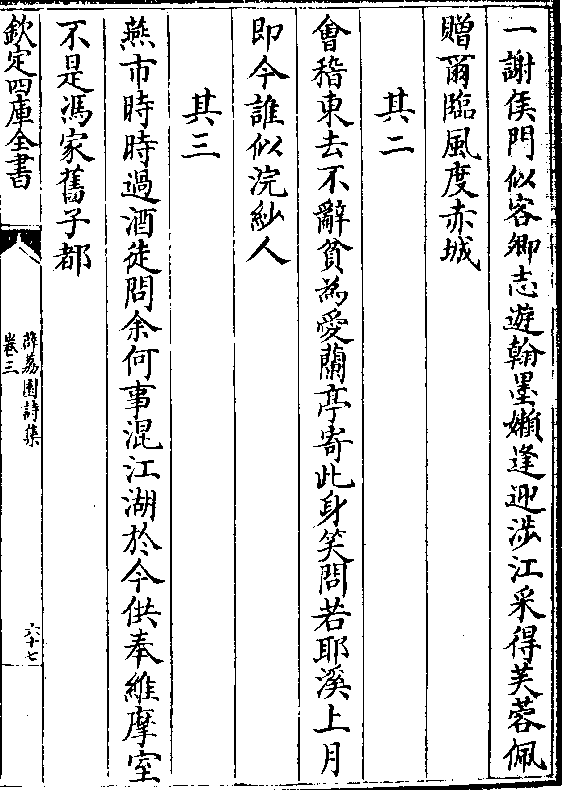 一謝侯門似客卿志遊翰墨嬾逢迎涉江采得芙蓉佩
贈爾臨風度赤城
其二
會稽東去不辭貧為愛蘭亭寄此身笑問若耶溪上月
即今誰似浣紗人
其三
燕市時時過酒徒問余何事混江湖於今供奉維摩室
不是馮家舊子都
欽定四庫全書
薜荔園詩集
卷三
六十七